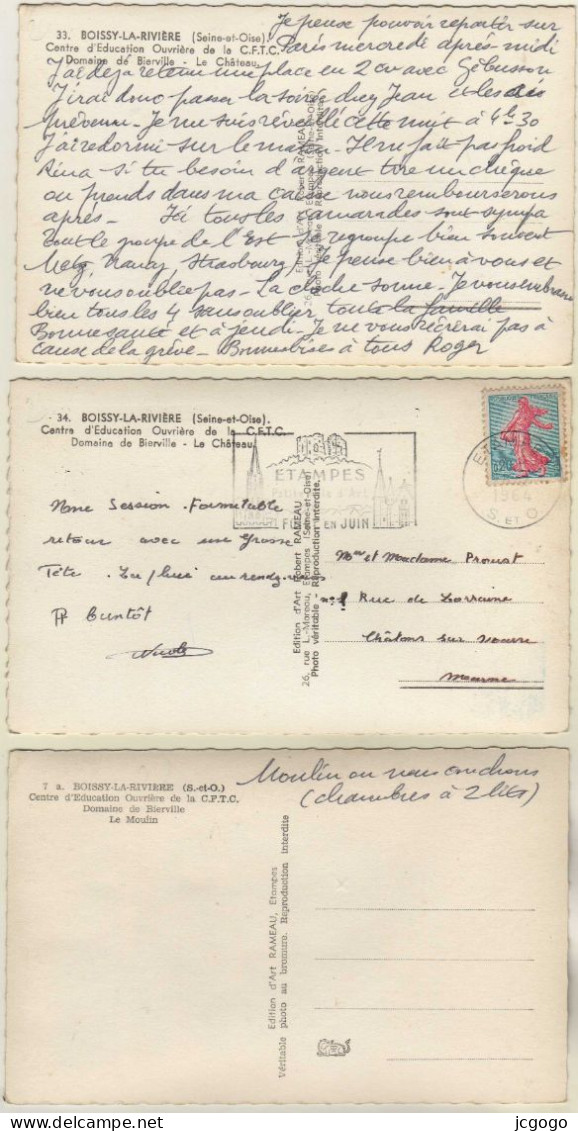 33. BOISSY-LA-RIVIÈRE (Seine-et-Oise).
Centre d'Education Ouvrière de la C.F.T.C.
Domaine de Bierville - Le Château.
Je pense pouvoir repartir sur
Paris mercredi après-midi
J'ai déjà retenu une place en 2 cv avec
J'irai donc passer la soirée chez Jean et les ai
prévenu. Je me suis réveillé cette nuit à 4h30
J'ai redormi sur le matin. Il ne fait pas froid
si tu besoin d'argent tire un chèque
ou prends dans ma caisse nous rembourserons
après - Ici tous les camarades sont sympa
tout le groupe de l'Est se regroupe bien souvent
Metz, Nancy, Strasbourg. Je pense bien à vous et
ne vous oublie pas - La cloche sonne - Je vous embrasse
bien tous les 4 sans oublier toute la famille
Bonne santé et à jeudi - Je ne vous récrirai pas à
cause de la grève - Bonnes bises à tous Roger
Edition d'Art Robert RAMEAU
26, rue L.-Moreau, Etampes (Seine-et-Oise)
Photo véritable - Reproduction interdite.
34. BOISSY-LA-RIVIÈRE (Seine-et-Oise).
Centre d'Education Ouvrière de la C.F.T.C.
Domaine de Bierville - Le Château.
ETAMPES
EN JUIN
0,20
1964
S. ET O.
Bonne Session. Formidable
retour avec une grosse
Tête. La pluie au rendez-vous
A bientôt
Nicole
Edition d'Art Robert RAMEAU
26, rue L.-Moreau, Etampes (Seine-et-Oise)
Photo véritable - Reproduction interdite.
Mr et Madame Proust
Rue de Lorraine
Châlons sur Marne
Marne
7 a. BOISSY-LA-RIVIÈRE (S.-et-O.)
Centre d'Education Ouvrière de la C.F.T.C.
Domaine de Bierville
Le Moulin
Moulin ou nous couchons
(chambres à 2 lits)
Edition d'Art RAMEAU, Etampes
Véritable photo au bromure. Reproduction interdite
jcgogo